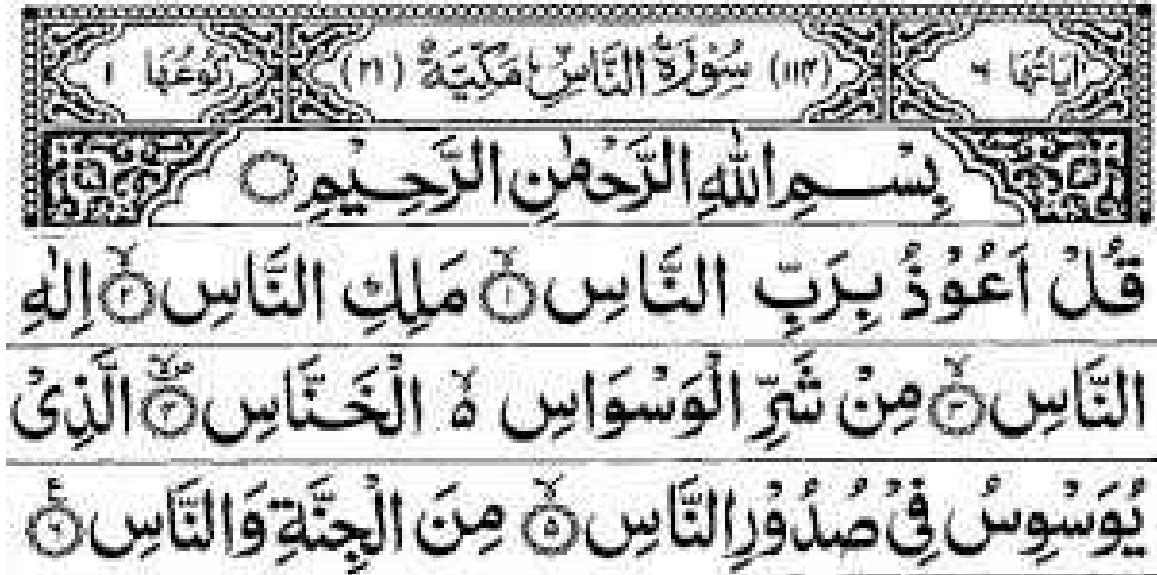 اٰيَاتُهَا ٦ (١١٤) سُوْرَةُ النَّاسِ مَكِّيَّةٌ (٢١) رُكُوْعُهَا ١
بِسْمِ اللّٰهِ الرَّحْمٰنِ الرَّحِيْمِ ○
قُلْ اَعُوْذُ بِرَبِّ النَّاسِ ۙ﴿١﴾ مَلِكِ النَّاسِ ۙ﴿٢﴾ اِلٰهِ
النَّاسِ ۙ﴿٣﴾ مِنْ شَرِّ الْوَسْوَاسِ ۙ۬ الْخَنَّاسِ ۙ﴿٤﴾ الَّذِيْ
يُوَسْوِسُ فِيْ صُدُوْرِ النَّاسِ ۙ﴿٥﴾ مِنَ الْجِنَّةِ وَالنَّاسِ ﴿٦﴾